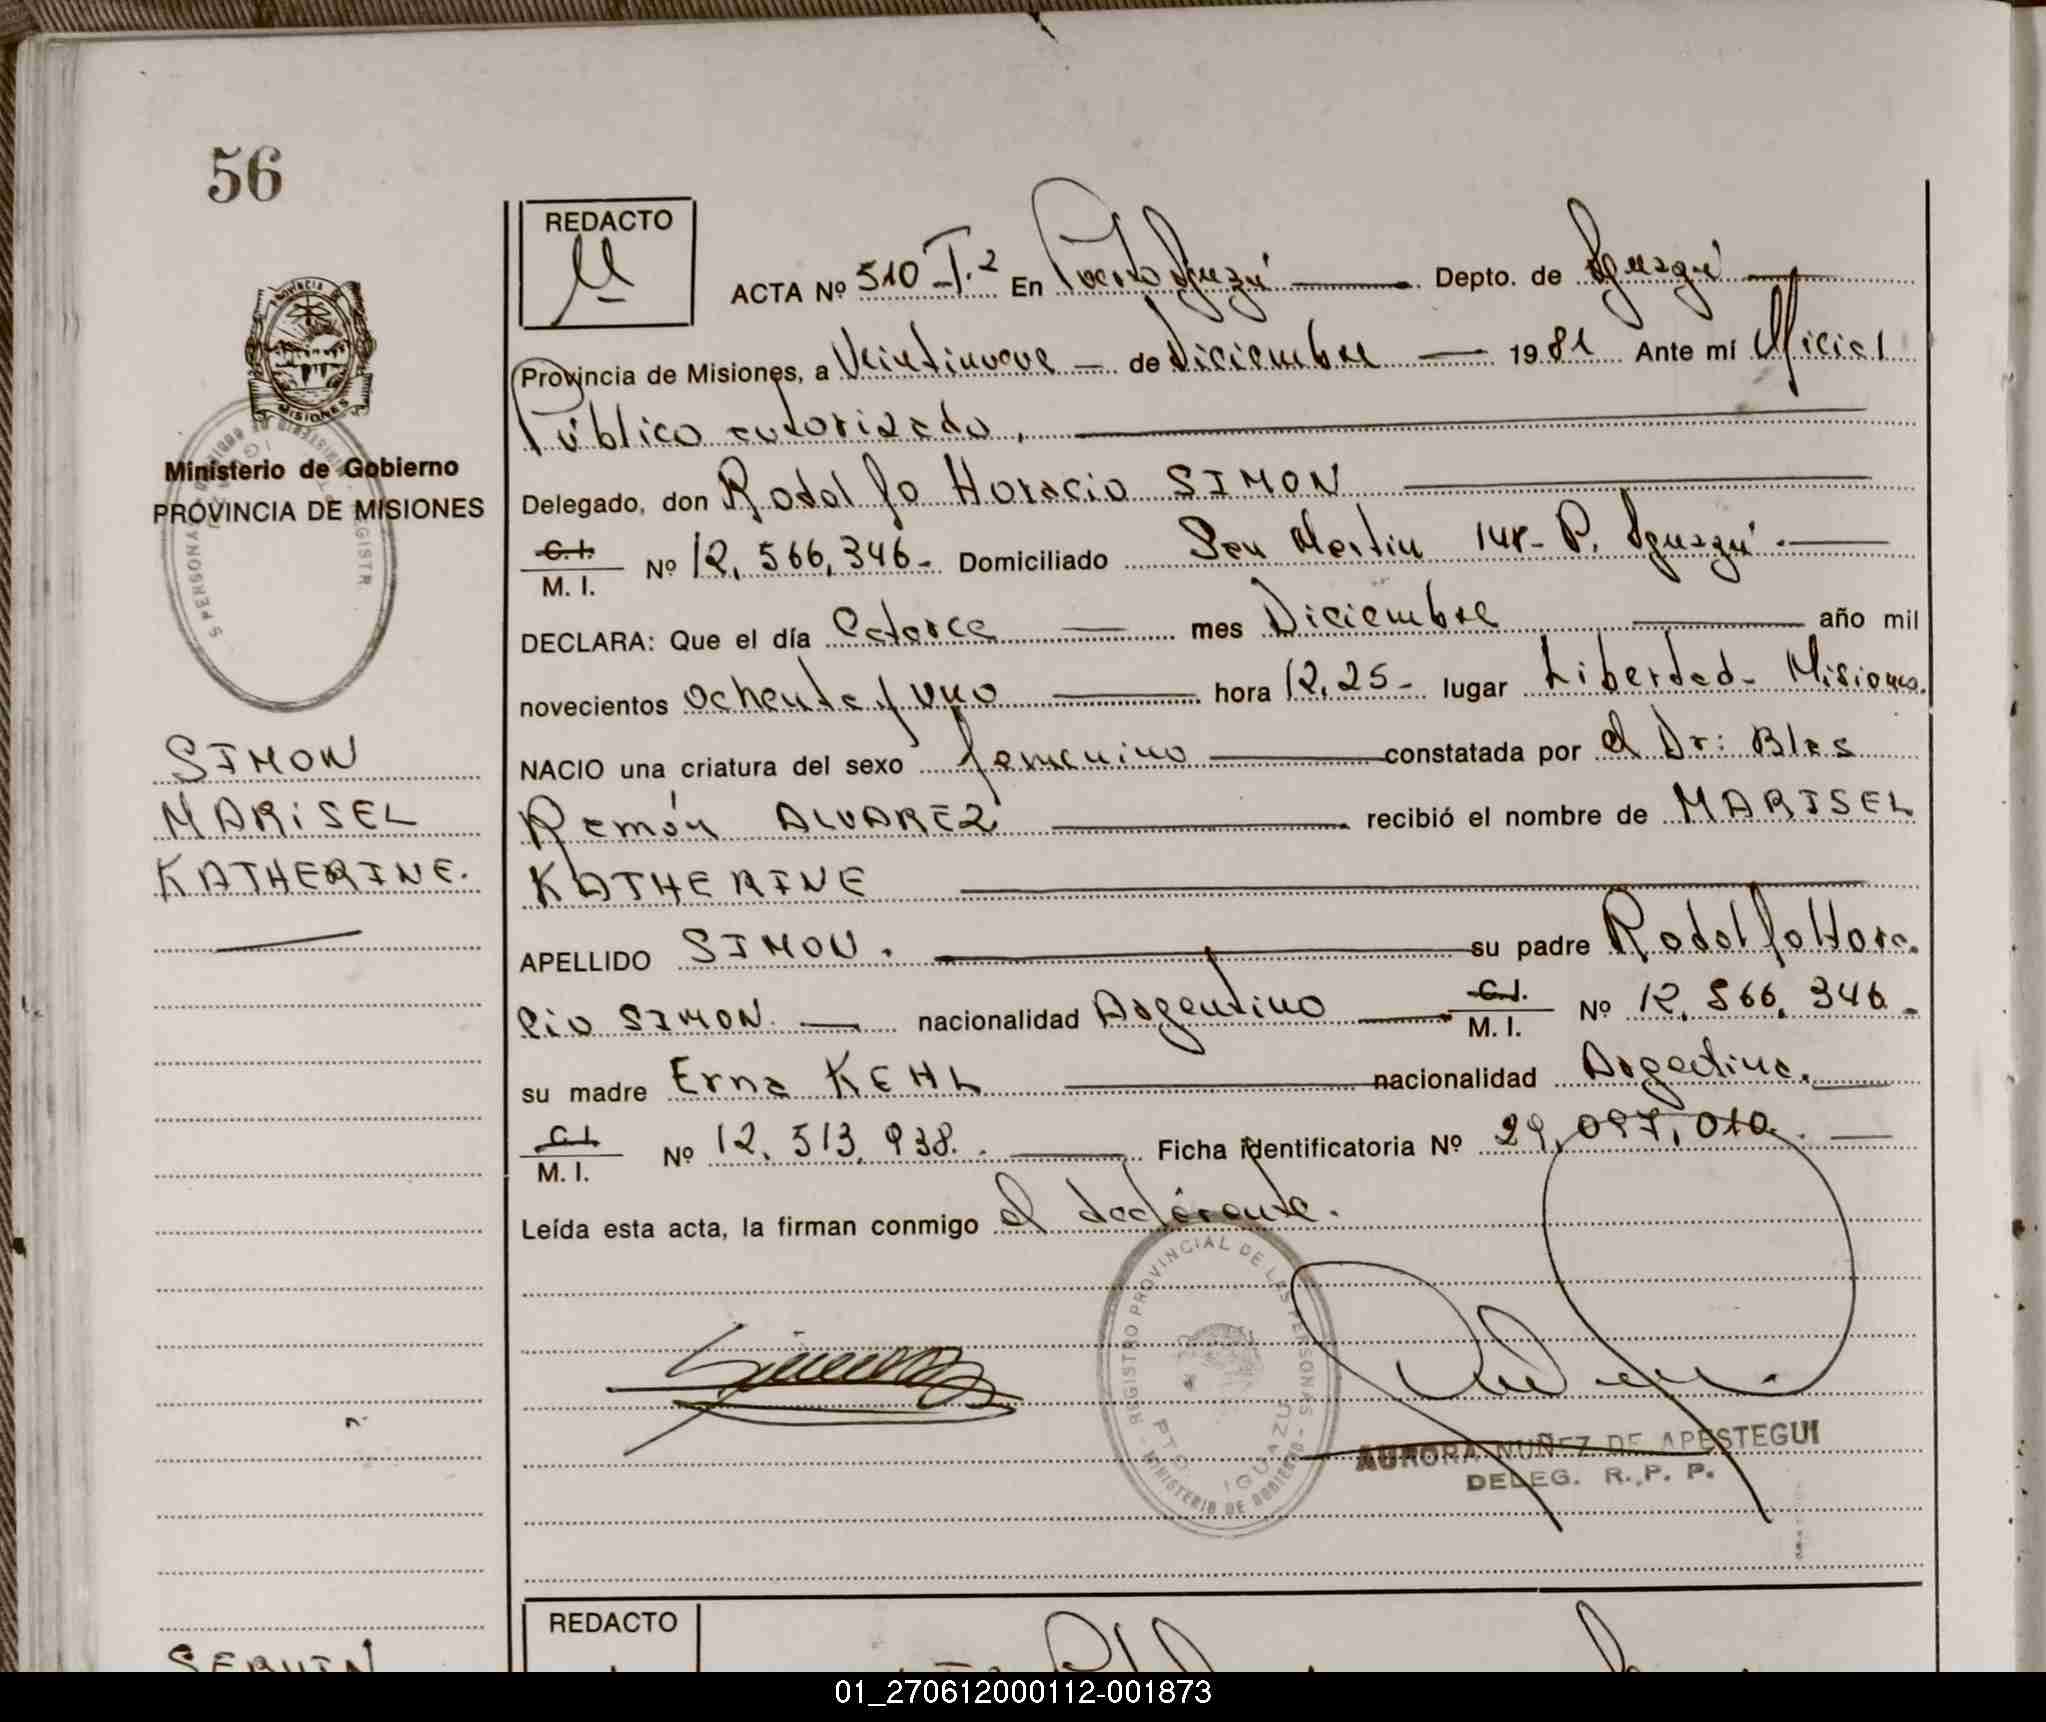 56
REDACTO
ACTA Nº 510 - T. 2 En Puerto Iguazú Depto. de Iguazú
Provincia de Misiones, a Veintinueve de Diciembre 1981 Ante mí Oficial
Público autorizado,
Delegado, don Rodolfo Horacio SIMON
C. I.
M. I. Nº 12.566.346 - Domiciliado San Martin P. Iguazú.
DECLARA: Que el día Catorce mes Diciembre año mil
novecientos ochenta y uno hora 12,25 - lugar Libertad - Misiones.
NACIO una criatura del sexo femenino constatada por el Dr: Blas
Ramón ALVAREZ recibió el nombre de MARISEL
KATHERINE
APELLIDO SIMON. su padre Rodolfo Hora-
cio SIMON. nacionalidad Argentino C. I.
M. I. Nº 12.566.346 -
su madre Erna KEHL nacionalidad Argentina.
C. I.
M. I. Nº 12.513.938. Ficha identificatoria Nº 29.097.010.
Leída esta acta, la firman conmigo el declarante.
REGISTRO PROVINCIAL DE LAS PERSONAS
PTO. IGUAZU
- MINISTERIO DE GOBIERNO -
AURORA NUÑEZ DE APESTEGUI
DELEG. R. P. P.
PROVINCIA DE
MISIONES
Ministerio de Gobierno
PROVINCIA DE MISIONES
SIMON
MARISEL
KATHERINE.
REDACTO
01_270612000112-001873